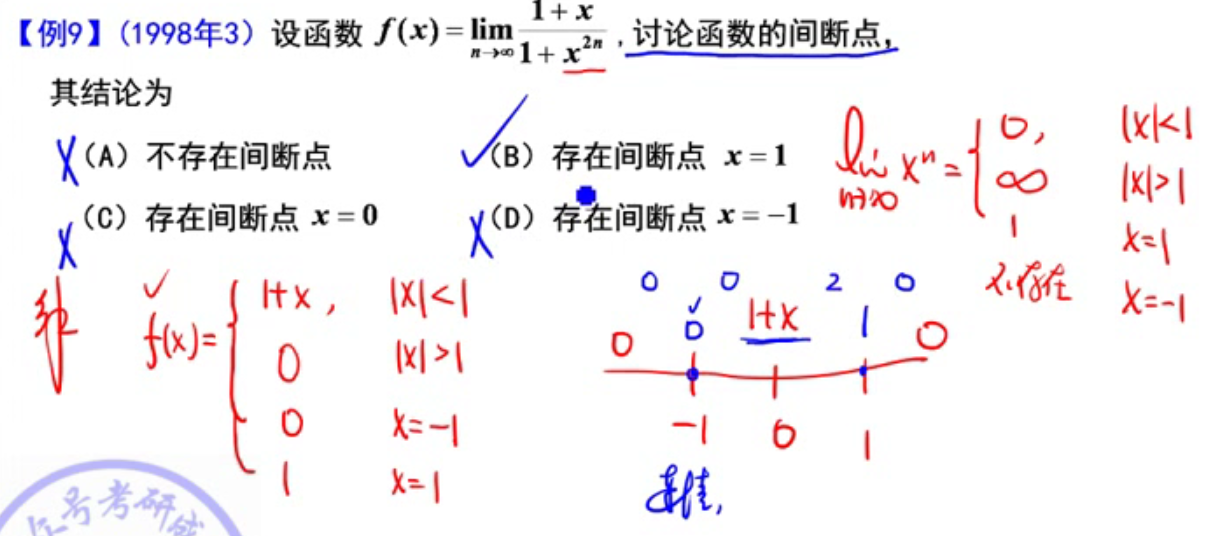 【例9】(1998年3) 设函数 f(x) = lim_{n→∞} (1+x)/(1+x^{2n}) , 讨论函数的间断点,
其结论为
X (A) 不存在间断点 ✓ (B) 存在间断点 x = 1
X (C) 存在间断点 x = 0 X (D) 存在间断点 x = −1
lim_{n→∞} x^n = { 0, |x|<1
∞ |x|>1
1 x=1
不存在 x=-1
解 ✓ f(x) = { 1+x, |x|<1
0 |x|>1
0 x=-1
1 x=1
0 0 2 0
0 0 ✓ 1+x 1 0
-1 0 1
号考研